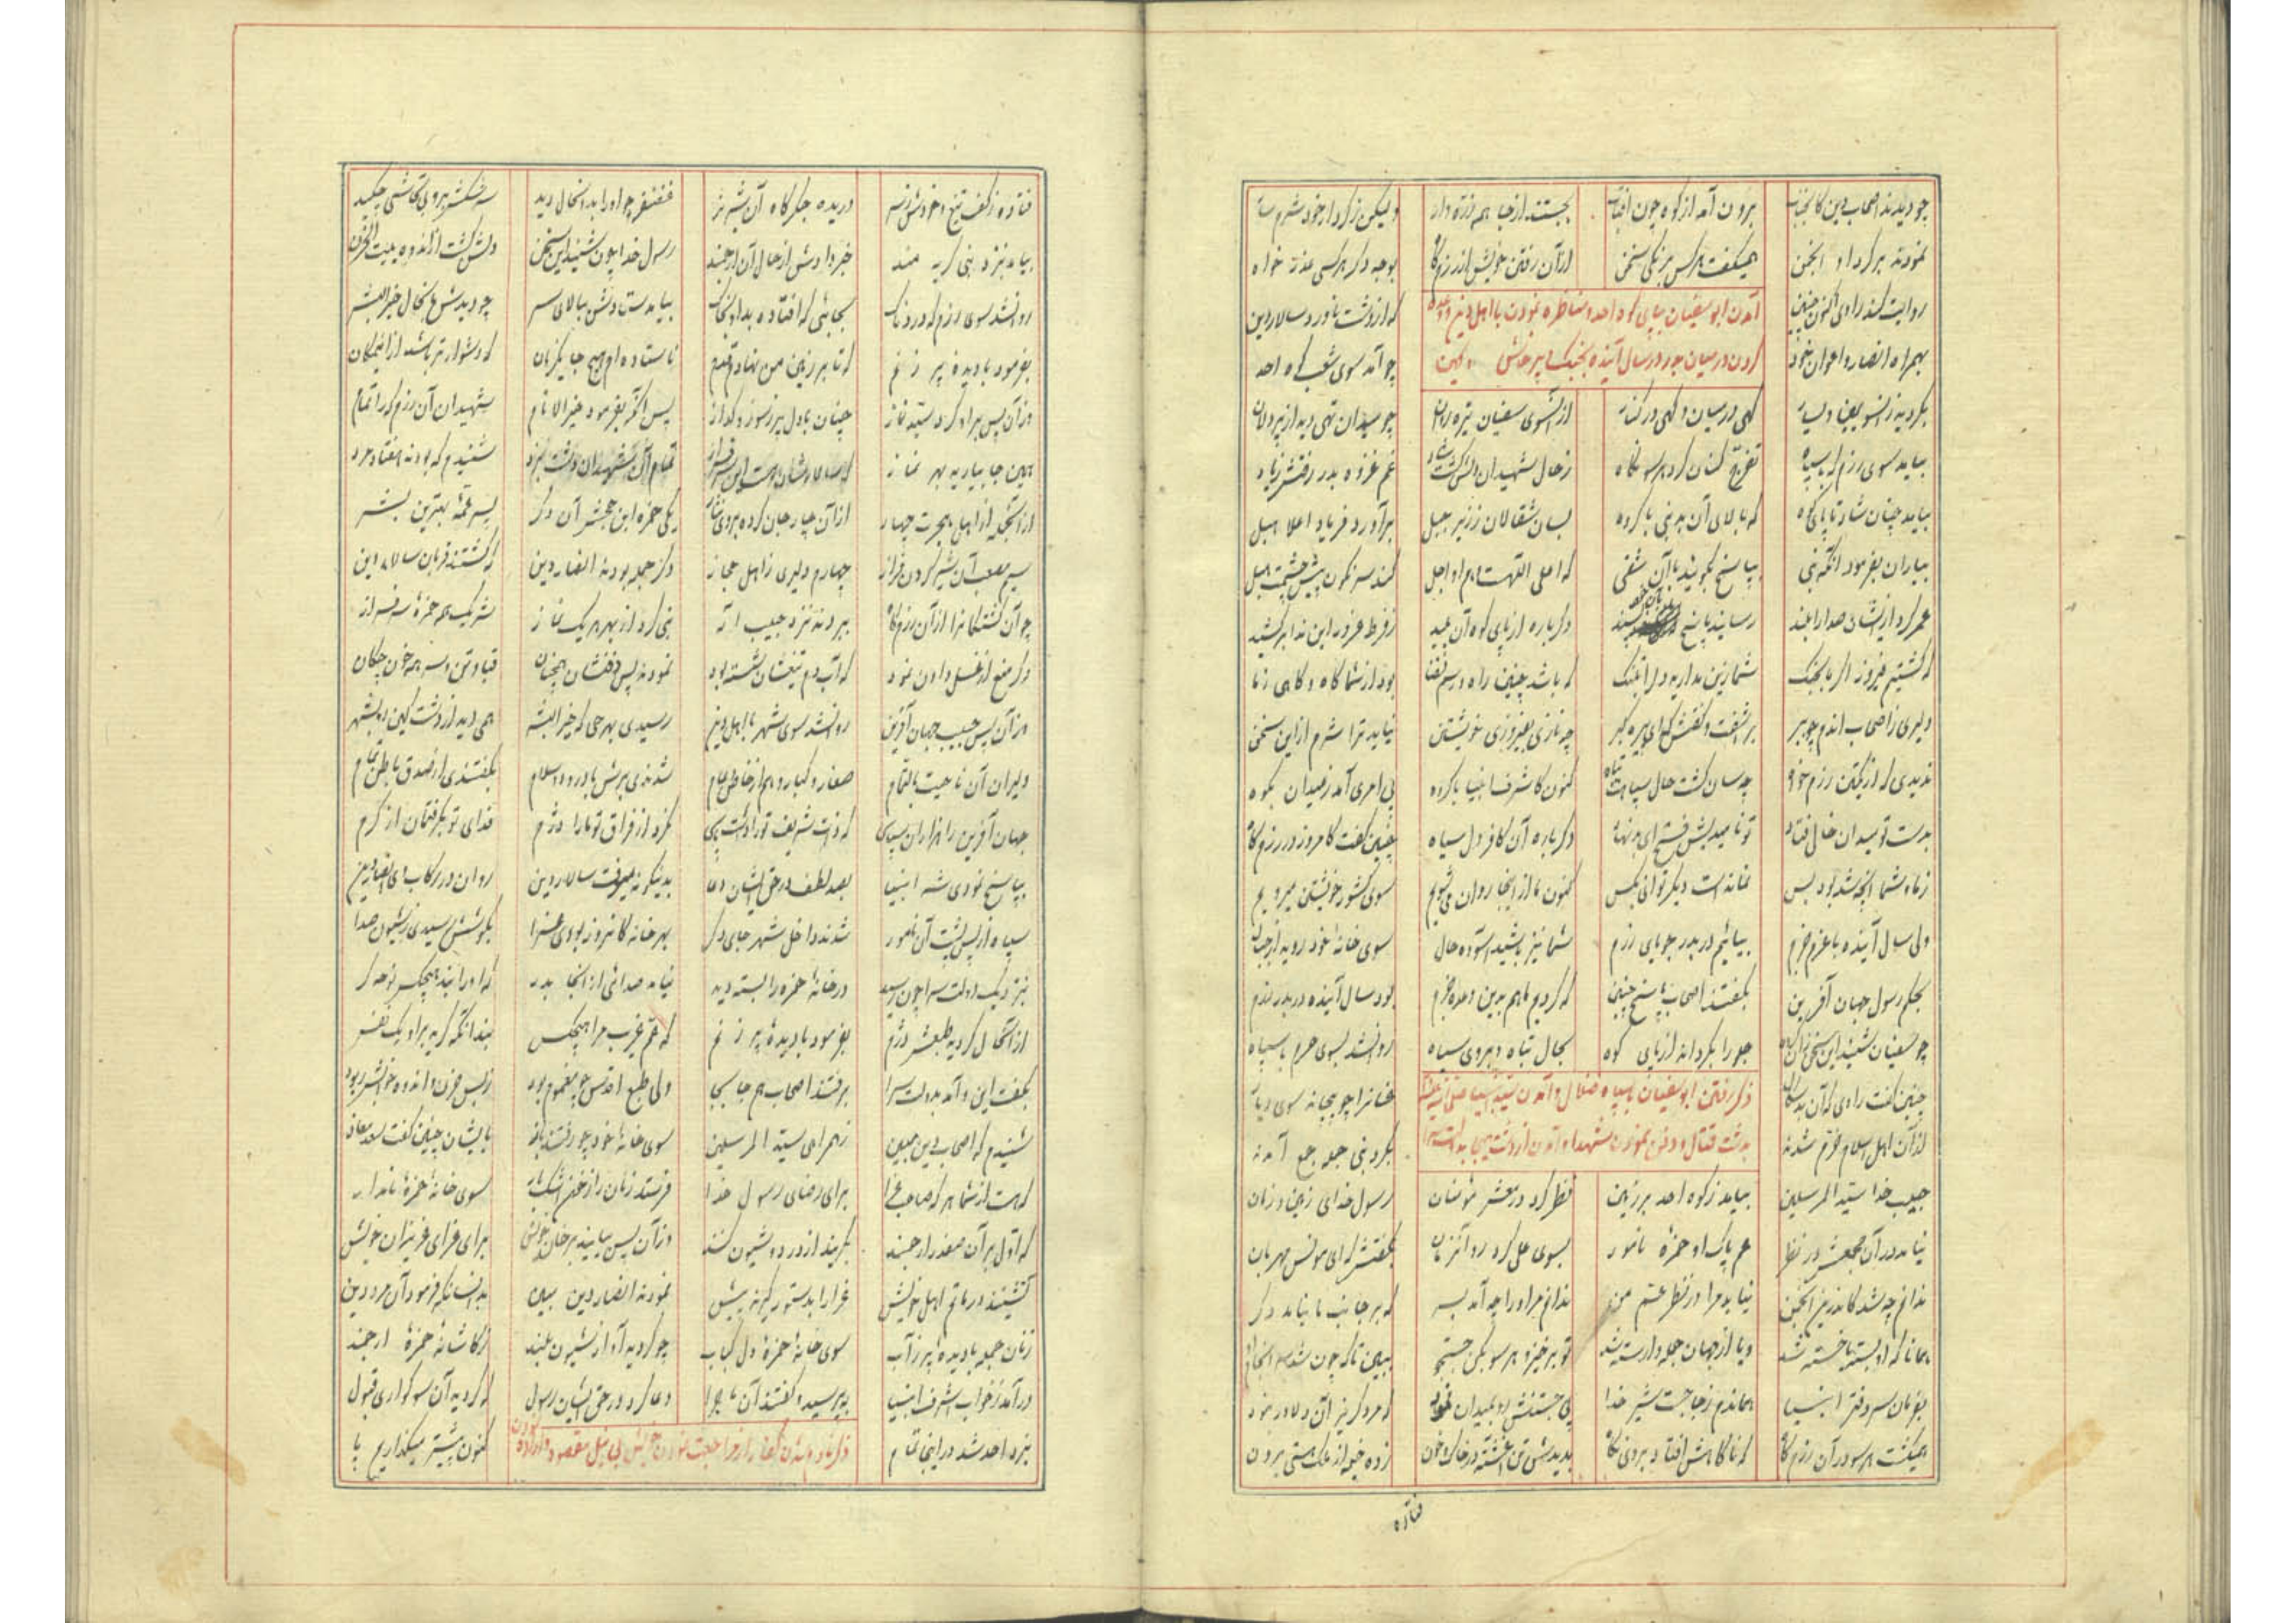 چو دیدند اصحاب دین کانجناب برون آمد از کوه چون آفتاب بجستند از جا همه ذره وار ولیکن ز کردار خود شرمسار
نمودند بر گرد او انجمن همیگفت هر کس برنگی سخن از آن رفتن خویش از رزمگاه بوجه دگر هر کسی عذر خواه
روایت کند راوی اکنون چنین که از دشت ناورد سالار دین
آمدن ابوسفیان بپای کوه احد و مناظره نمودن با اهل دین و وعده
بهمراه انصار و اعوان خود چو آمد سوی شعب کوه احد
کردن در میان بدر در سال آینده بجنگ و پرخاش
بکردید زانسو یمین و یسار گهی در میان و گهی در کنار از آنسوی سفیان تیره روان چو میدان تهی دید از پردلان
بیامد سوی رزمگه با سپاه تفرج کنان کرد هر سو نگاه ز حال شهیدان دلش گشت شاد غم غزوه بدر رفتش ز یاد
بیامد چنان شاد تا پای کوه که بالای آن بد نبی با گروه بسان شغالان ز زیر جبل برآورد فریاد اعلا هبل
بیاران بفرمود آنگه نبی بپاسخ بگوئید با آن شقی که اعلی اللهست هم او اجل کند سرنگون پیش چشمت هبل
عمر کرد از ایشان صدا را بلند رسانید پاسخ دگرباره از پای کوه آن عنید ز فرط غرور این ندا برکشید
که گشتیم فیروز اگر ما بجنگ شما زین مدارید دل را بتنگ که باشد چنین راه و رسم قضا بود از شما گاه و گاهی ز ما
دلیری ز اصحاب اندم چو ببر برآشفت و گفتش که ای پیره گبر چه نازی بفیروزی خویشتن نیاید ترا شرم از این سخن
ندیدی که از یکتن رزم خواه چه سان گشت حال سپاهت تباه کنون کاشرف انبیا با گروه پی امری آمد ز میدان بکوه
بدست تو میدان خالی فتاد تو نامیدیش فتح ای بدنهاد دگرباره آن کافر دل سیاه چنین گفت کامروز در رزمگاه
ز ما و شما آنچه شد بود بس نماندست دیگر توانی بکس کنون ما از اینجا روان میشویم سوی کشور خویشتن میرویم
ولی سال آینده با عزم جزم بیائیم در بدر جویای رزم شما نیز باشید آسوده حال سوی خانه خود روید از جبال
بحکم رسول جهان آفرین بگفتند اصحاب پاسخ چنین که کردیم ما هم بدین وعده جزم بود سال آینده در بدر رزم
چو سفیان شنید این سخن زان گروه جلو را بگرداند از پای کوه بحال تباه و بروی سیاه روانشد بسوی حرم با سپاه
چنین گفت راوی که آن بدسگال عنانرا چو پیچاند سوی دیار
ذکر رفتن ابوسفیان با سپاه ضلال و آمدن سید انبیا صلی الله علیه
از آن اهل اسلام خرم شدند بگرد نبی جمله جمع آمدند
بدشت قتال و دفن نمودن شهدا و آمدن از دشت هیجا بدولت سرا
حبیب خدا سید المرسلین بیامد ز کوه احد بر زمین نظر کرد در معشر مؤمنان رسول خدای زمین و زمان
نیامد در آن مجمعش در نظر عم پاک او حمزه نامور بسوی علی کرد رو آنزمان بگفتش که ای مونس مهربان
ندانم چه شد کاندرین انجمن نیاید مرا در نظر عم من ندانم مر او را چه آمد بسر که بر جانب ما نیامد دگر
همانا که او بسته یا خسته شد و یا از جهان جمله وارسته شد تو برخیز و هر سو بکن جستجو ببین تا که چون شد سرانجام او
بفرمان سر دفتر انبیا هماندم ز جا جست شیر خدا پی جستنش رو بمیدان نمود که مرد گزین آن دلاور نمود
همیگشت هر سو در آن رزمگاه که ناگاهش افتاد بر وی نگاه بدیدش تن آغشته در خاک و خون زده خیمه از ملک هستی برون
فتاده
فتاده ز کف تیغ و خودش ز سر دریده جگرگاه آن شیر نر غضنفر چو او را بدانحال دید سرشکش برو بی تحاشی چکید
بیامد بنزد نبی گریه مند خبر دادش از حال آن ارجمند رسول خدا چون شنید این سخن دلش گشت از اندوه بیت الحزن
روانشد سوی رزمگه دردناک بجائی که افتاده بد او بخاک بیامد ستادش ببالای سر چو دیدش بدانحال خیر البشر
بفرمود با دیده پر ز نم که تا بر زمین من نهادم قدم نایستاده ام هیچ جا یکزمان که دشوارتر باشد از این مکان
وز آن پس بر او کرد سید نماز چنان با دل پر ز سوز و گداز پس آنگه بفرمود خیر الانام شهیدان آن رزمگه را تمام
همین جا بیارید بهر نماز که سالارشان هست این سرفراز تمام آن شهیدان دشت نبرد شنیدم که بودند هفتاد مرد
از آنجمله از اهل هجرت چهار از آن چار جان کرده بر وی نثار یکی حمزه ابن جحش آن دگر پسر عمه بهترین بشر
سیم مصعب آن شیر گردن فراز چهارم دلیری ز اهل حجاز دگر جمله بودند انصار دین که گشتند قربان سالار دین
چو آن کشتگانرا از آن رزمگاه ببردند نزد حبیب اله نبی کرد از بهر هر یک نماز شریک همه حمزه سرفراز
دگر منع از غسل دادن نمود که آب دم تیغشان شسته بود نمودند پس دفنشان همچنان قبا و تن و سر همه خون چکان
وز آن پس حبیب جهان آفرین روانشد سوی شهر با اهل دین رسیدی بهر حی که خیر البشر همی دید از دشت کین رو بشهر
دلیران آن ناحیت بالتمام صغار و کبار و هم از خاص و عام شدندی برش با درود و سلام بگفتندی از صدق باطن تمام
جهان آفرین را هزاران سپاس که ذات شریف تو را داشت پاس نکرد از فراق تو ما را دژم فدای تو بگرفتمان از کرم
بپاسخ نمودی شه انبیا بصد لطف در حق ایشان دعا بدینگونه میرفت سالار دین روان در رکاب وی انصار دین
سپاه از پس پشت آن نامور شدند داخل شهر جای دگر بهر خانه کانروز بودی عزا بگوشش رسیدی ز شیون صدا
بنزدیک دولت سرا چون رسید در خانه حمزه را بسته دید نیامد صدائی از آنجا بدر که او را نبد هیچکس نوحه گر
از آنحال گردید طبعش دژم بفرمود با دیده پر ز نم که عم غریب مرا هیچکس نبد آنکه گرید بر او یک نفس
بگفت این و آمد بدولت سرا برفتند اصحاب هم جا بجا ولی طبع اقدس چو مغموم بود ز بس حزن و اندوه خوابش ربود
شنیدم که اصحاب دین مبین ز همراهی سید المرسلین سوی خانه خود چو رفتند باز بایشان چنین گفت سعد معاذ
که هست از شما هر که صاحب عزا برای رضای رسول خدا فرستد زنان را از خون اشکبار سوی خانه حمزه نامدار
که اول بر آن صفدر ارجمند بگریند از درد و شیون کنند وز آن پس بیایند بر خان خویش برای عزای عزیزان خویش
نشینند در ماتم اهل خویش عزا را بدستور گیرند پیش نمودند انصار دین مبین بدانسانکه فرمود آن مرد دین
زنان جمله با دیده پر ز آب سوی خانه حمزه دل کباب چو گردید آواز شیون بلند ز کاشانه حمزه ارجمند
درآمد ز خواب اشرف انبیا بپرسید و گفتند آن ماجرا دعا کرد در حق ایشان رسول که گردید آن سوگواری قبول
نبرد احد شد در اینجا تمام کنون پیشتر میگذاریم پا
ذکر نادم شدن کفار از مراجعت نمودن خویش بی نیل مقصود